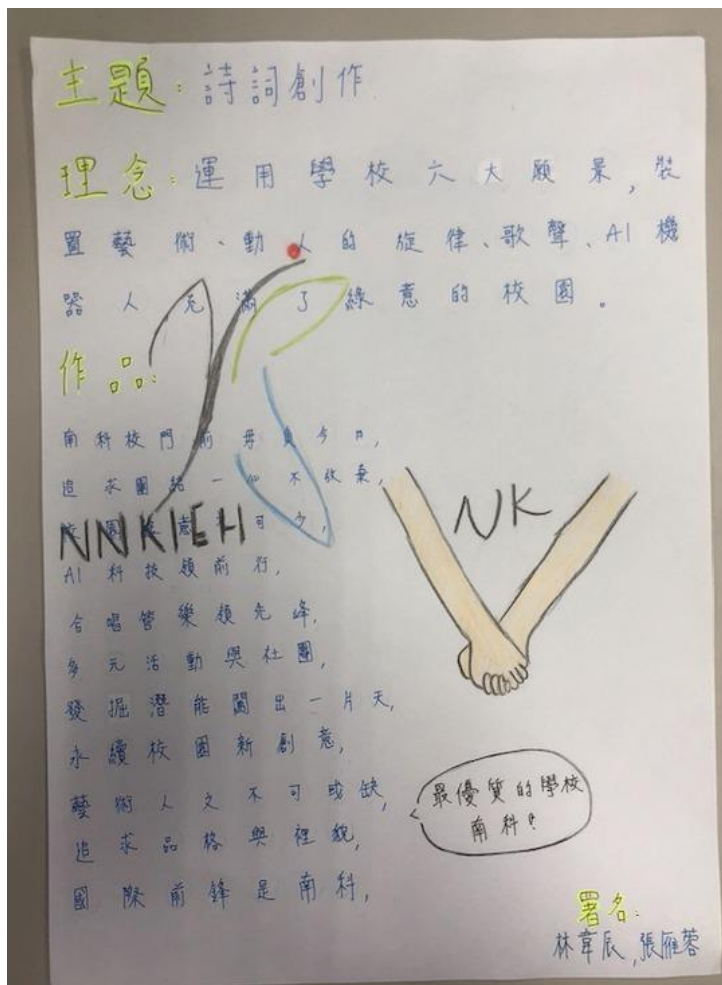 主題:詩詞創作
理念:運用學校六大願景,裝
置藝術、動人的旋律、歌聲、AI機
器人充滿了綠意的校園。
作品:
南科校門前毋負今日,
追求團結一心不放棄,
校園綠意不可少,
NNKIEH
AI科技領前行,
合唱管樂領先鋒,
多元活動與社團,
發掘潛能闖出一片天,
永續校園新創意,
藝術人文不可或缺,
追求品格與禮貌,
國際前鋒是南科,
NK
最優質的學校
南科!
署名:
林韋辰,張雁蓉